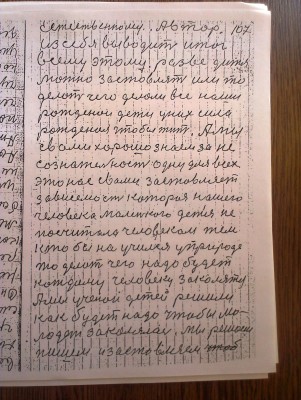 естественному. Автор. 167
из себя выводит итог
всему этому, разве детей
можно заставлять или то
делат чего делали все наши
рождения дети у них сила
рождения чтобы жит. А мы
с вами хорошо знаем за не
сознателност одну для всех
это нас с вами заставляет
зависемост которая нашего
человека маленкого детя не
посчитала человеком тем
кто бы научился у природе
то делат чего надо будет
каждому человеку закаляться
А мы ученой детей решили
как будет надо чтобы мо-
лодеж закалялас. мы решаем
пишем и заставляем чтоб